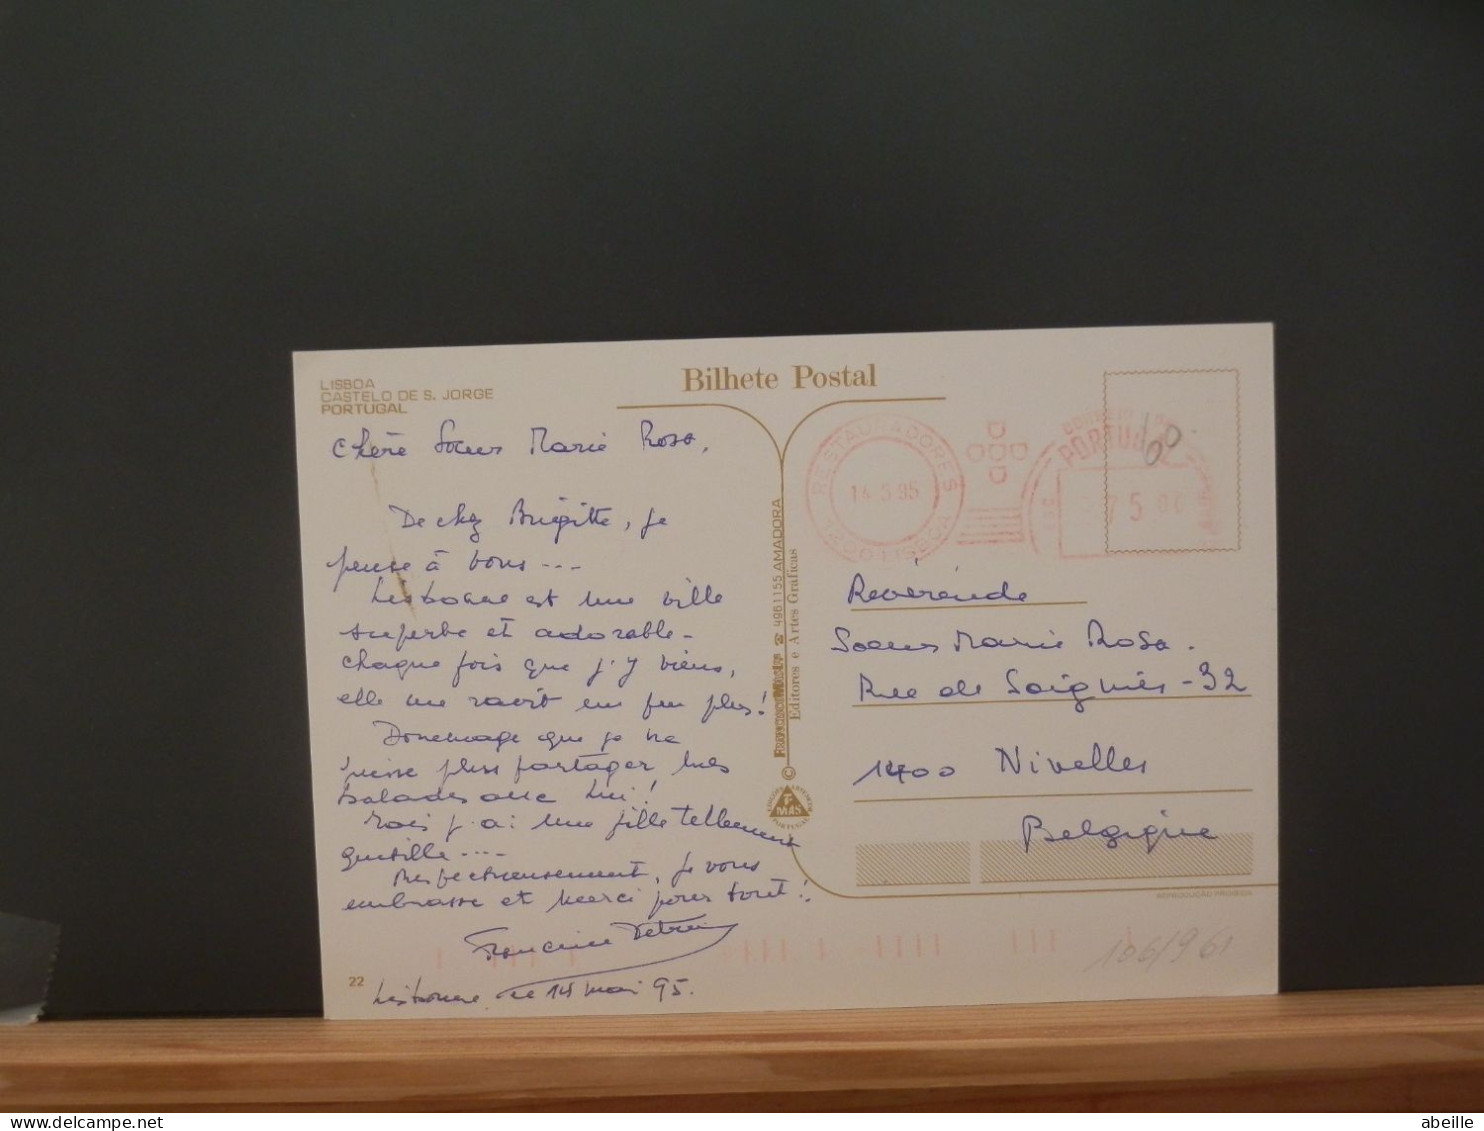 LISBOA
CASTELO DE S. JORGE
PORTUGAL
Bilhete Postal
Chère Soeur Marie Rosa,
De chez Brigitte, je
pense à vous ...
Lisbonne est une ville
superbe et adorable -
chaque fois que j'y viens,
elle me ravit un peu plus!
Dommage que je ne
puisse plus partager mes
balades avec lui!
Mais j'ai une fille tellement
gentille ....
Respectueusement, je vous
embrasse et merci pour tout!
Francine
Lisbonne le 14 mai 95.
22
4961155 AMADORA
Editores e Artes Gráficas
©
MAS
PORTUGAL
RESTAURADORES
14.5.95
1200 LISBOA
PORTUGAL
75.00
Révérende
Soeur Marie Rosa.
Rue de Soignies - 32
1400 Nivelles
Belgique
REPRODUÇÃO PROIBIDA
106/961
abeille